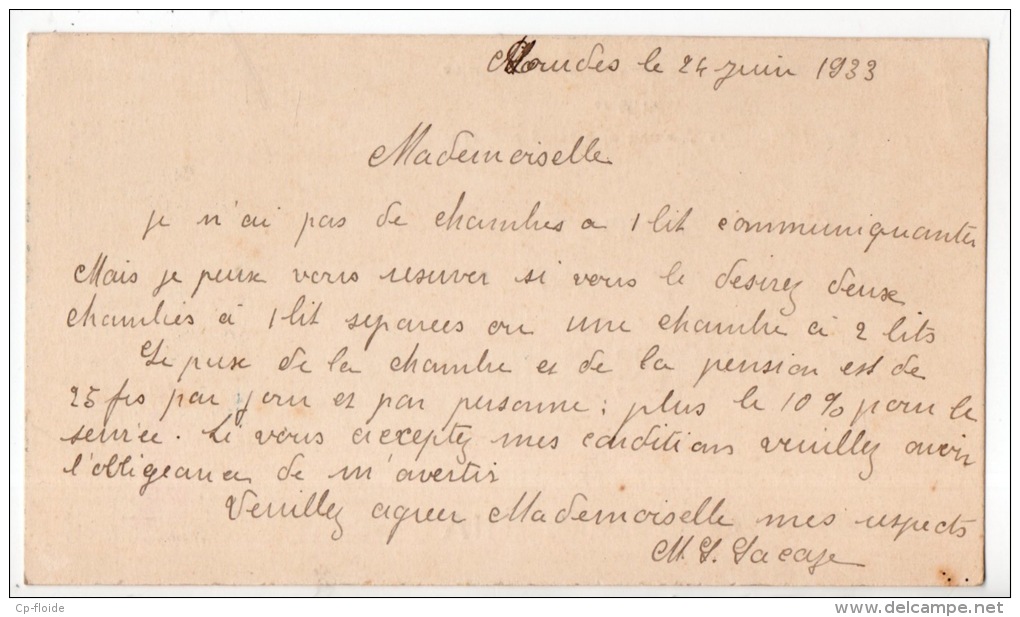 Lourdes le 24 juin 1933
Mademoiselle
je n'ai pas de chambres a 1 lit communiquantes
Mais je peux vous reserver si vous le desirez deux
chambres à 1 lit separees ou une chambre à 2 lits
Le prix de la chambre et de la pension est de
25 frs par jour et par personne ; plus le 10% pour le
service. Si vous acceptez mes conditions veuillez avoir
l'obligeance de m'avertir
Veuillez agreer Mademoiselle mes respects
M. L. Lacaze
Cp-floide
www.delcampe.net